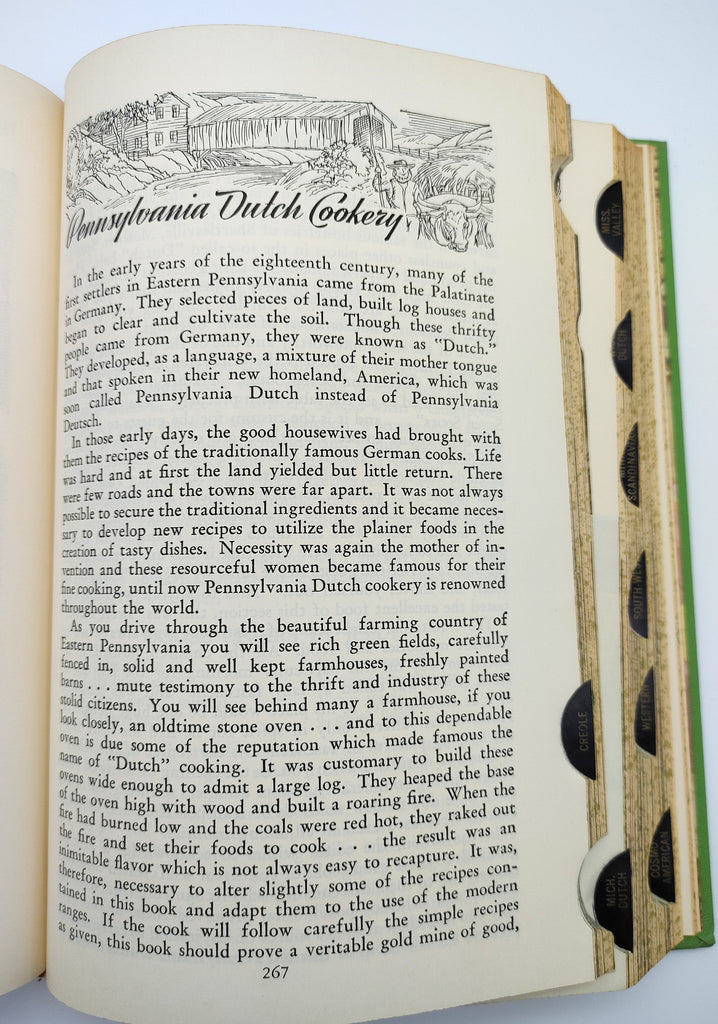 Pennsylvania Dutch Cookery
In the early years of the eighteenth century, many of the
first settlers in Eastern Pennsylvania came from the Palatinate
in Germany. They selected pieces of land, built log houses and
began to clear and cultivate the soil. Though these thrifty
people came from Germany, they were known as "Dutch."
They developed, as a language, a mixture of their mother tongue
and that spoken in their new homeland, America, which was
soon called Pennsylvania Dutch instead of Pennsylvania
Deutsch.
In those early days, the good housewives had brought with
them the recipes of the traditionally famous German cooks. Life
was hard and at first the land yielded but little return. There
were few roads and the towns were far apart. It was not always
possible to secure the traditional ingredients and it became neces-
sary to develop new recipes to utilize the plainer foods in the
creation of tasty dishes. Necessity was again the mother of in-
vention and these resourceful women became famous for their
fine cooking, until now Pennsylvania Dutch cookery is renowned
throughout the world.
As you drive through the beautiful farming country of
Eastern Pennsylvania you will see rich green fields, carefully
fenced in, solid and well kept farmhouses, freshly painted
barns . . . mute testimony to the thrift and industry of these
stolid citizens. You will see behind many a farmhouse, if you
look closely, an oldtime stone oven . . . and to this dependable
oven is due some of the reputation which made famous the
name of "Dutch" cooking. It was customary to build these
ovens wide enough to admit a large log. They heaped the base
of the oven high with wood and built a roaring fire. When the
fire had burned low and the coals were red hot, they raked out
the fire and set their foods to cook . . . the result was an
inimitable flavor which is not always easy to recapture. It was,
therefore, necessary to alter slightly some of the recipes con-
tained in this book and adapt them to the use of the modern
ranges. If the cook will follow carefully the simple recipes
as given, this book should prove a veritable gold mine of good,
267
MISS.
VALLEY
DUTCH
SCANDINAVIAN
SOUTH WEST
WESTERN
CREOLE
COSMO
AMERICAN
MICH.
DUTCH